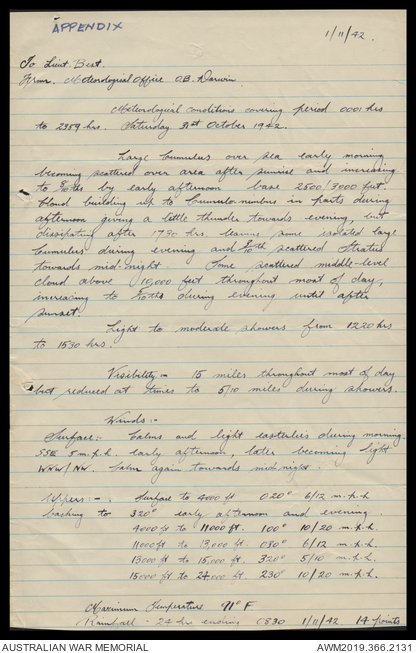 APPENDIX
1/11/42.
To Lieut Best.
From. Meteorological Office O.B. Darwin.
Meteorological conditions covering period 0001 hrs
to 2359 hrs. Saturday 31st October 1942.
Large Cumulus over sea early morning
becoming scattered over area after sunrise and increasing
to 5/10ths by early afternoon base 2500/3000 feet.
Cloud building up to Cumulo-nimbus in parts during
afternoon giving a little thunder towards evening, but
dissipating after 1730 hrs. leaving some isolated large
Cumulus during evening and scattered Stratus
towards mid-night Some scattered middle-level
cloud above 10,000 feet throughout most of day,
increasing to during evening until after
sunset.
Light to moderate showers from 1220 hrs
to 1530 hrs.
Visibility:- 15 miles throughout most of day
but reduced at times to 5/10 miles during showers.
Winds:-
Surface:- Calms and light easterlies during morning.
SSE 5 m.p.h. early afternoon, later becoming light
WNW/NW. Calm again towards midnight.
Uppers:- Surface to 4000 ft 020° 6/12 m.p.h
backing to 320° early afternoon and evening.
4000 ft to 11000 ft. 100° 10/20 m.p.h.
11000 ft to 13,000 ft. 080° 6/12 m.p.h.
13000 ft to 15,000 ft. 320° 5/10 m.p.h.
15000 ft to 24,000 ft. 230° 10/20 m.p.h.
Maximum Temperature 91° F
Rainfall - 24 hrs ending 0830 1/11/42 14 points
AUSTRALIAN WAR MEMORIAL
AWM2019.366.2131